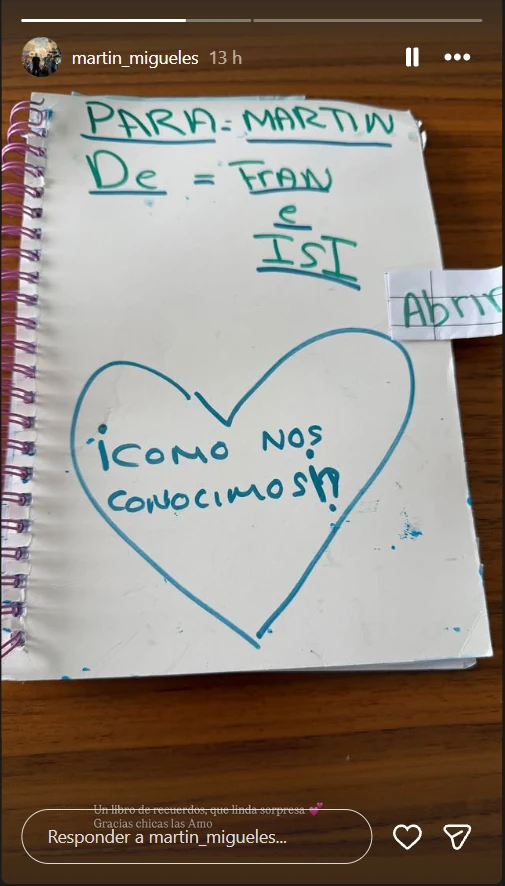 martin_migueles 13 h
PARA = MARTIN
De = FrAN
e
ISI
Abrir
¡COMO NOS
CONOCIMOS!?
Un libro de recuerdos, que linda sorpresa 💕
Gracias chicas las Amo
Responder a martin_migueles...